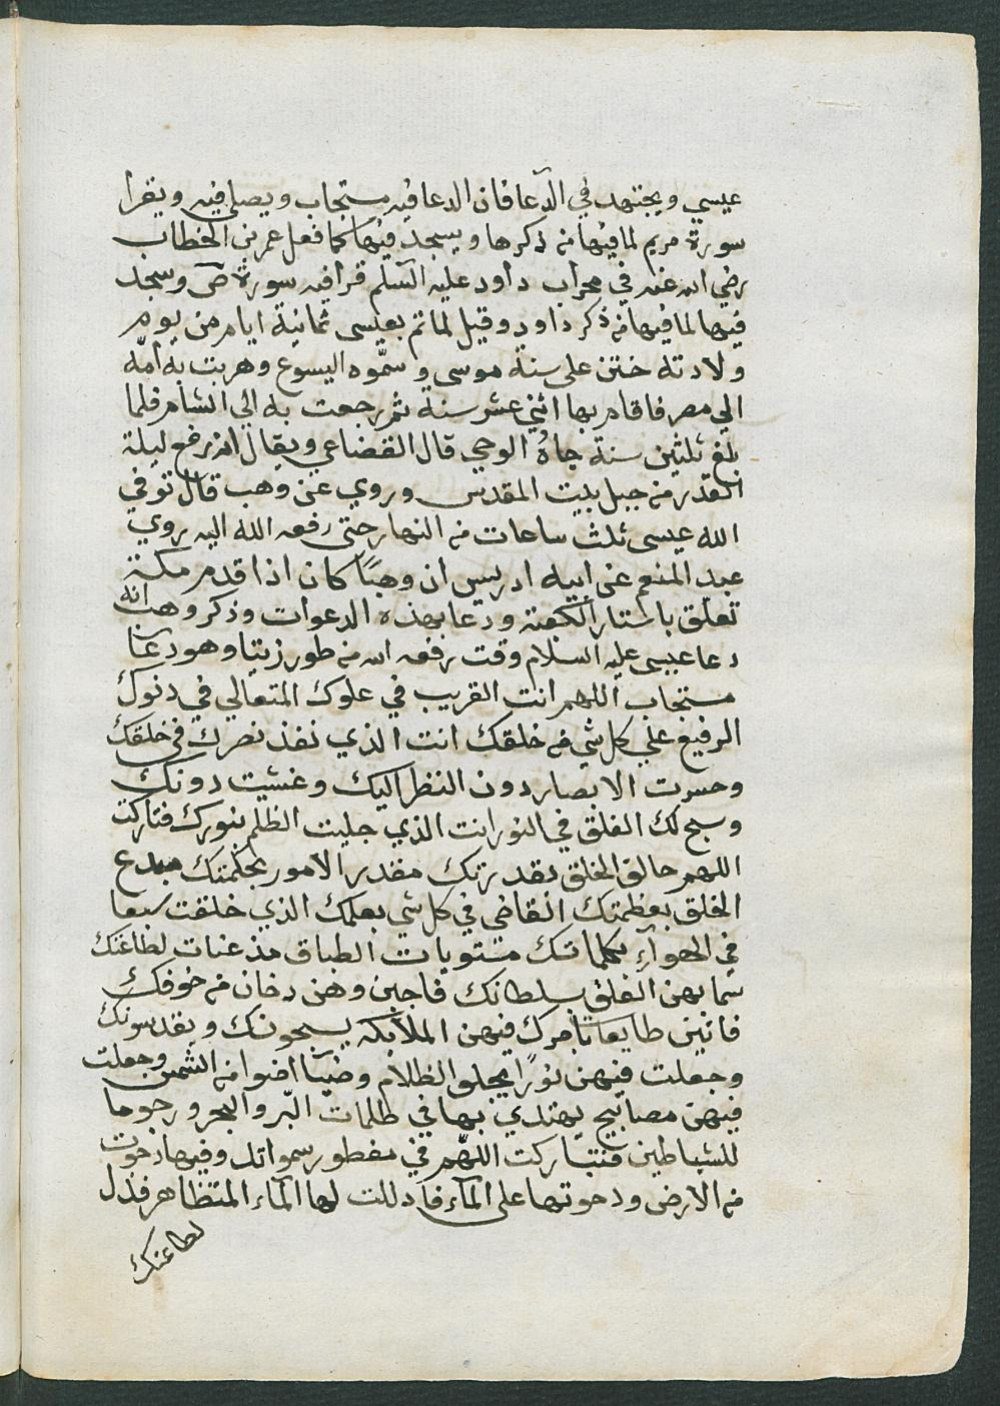 عيسي ويجتهد في الدّعا فان الدعا فيه مستجاب ويصلي فيه ويقرا
سورة مريم لما فيها من ذكرها ويسجد فيها كما فعل عمر بن الخطاب
رضي الله عنه في محراب داود عليه السّلم قرا فيه سورة صٓ وسجد
فيها لما فيها من ذكر داود وقيل لما تم بعيسى ثمانية ايام من يوم
ولادته ختن على سنة موسى وسمّوه اليسوع وهربت به امّه
الي مصر فاقام بها اثني عشر سنة ثم رجعت به الي الشام فلما
بلغ ثلثين سنة جاءهُ الوحي قال القضاعي ويقال انه رفع ليلة
القدر من جبل بيت المقدس وروي عن وهب قال توفي
الله عيسى ثلث ساعات من النهار حتى رفعه الله اليه روي
عبد المنعم عن ابيه ادريس ان وهبًا كان اذا قدم مكة
تعلق باستار الكعبة ودعا بهذه الدعوات وذكر وهب انه
دعا عيسى عليه السلام وقت رفعه الله من طور زيتا وهو دعآ
مستجاب اللهم انت القريب في علوك المتعالي في دنوك
الرفيع علي كل شي من خلقك انت الذي نفذ بصرك في خلقك
وحسرت الابصار دون النظر اليك وغشيت دونك
وسبح لك الفلق في النور انت الذي جليت الظلم بنورك فتباركت
اللهم خالق الخلق بقدرتك مقدر الامور بحكمتك مبدع
الخلق بعظمتك القاضي في كل شي بعلمك الذي خلقت سبعا
في الهوآءِ بكلماتك مستويات الطباق مذعنات لطاعتك
سما بهن الفلق بسلطانك فاجبن وهن دخان من خوفك
فاتين طايعات بامرك فيهن الملآيكة يسبحونك ويقدسونك
وجعلت فيهن نورًا يجلو الظلام وضيآ اضوا من الشمس وجعلت
فيهن مصابيح يهتدي بها في ظلمات البّر والبحر ورجوما
للشياطين فتباركت اللهّم في مفطور سمواتك وفيما دحوت
من الارض ودحوتها على المآء فاذللت لها المآء المتظاهر فذل
لطاعتك